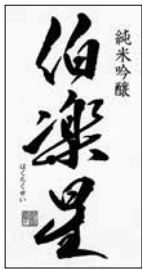 純米吟醸
伯楽星
はくらくせい